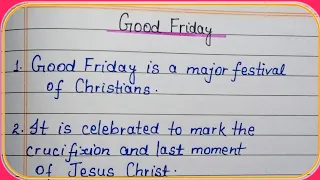 Good Friday
1. Good Friday is a major festival
of Christians.
2. It is celebrated to mark the
crucifixion and last moment
of Jesus Christ.